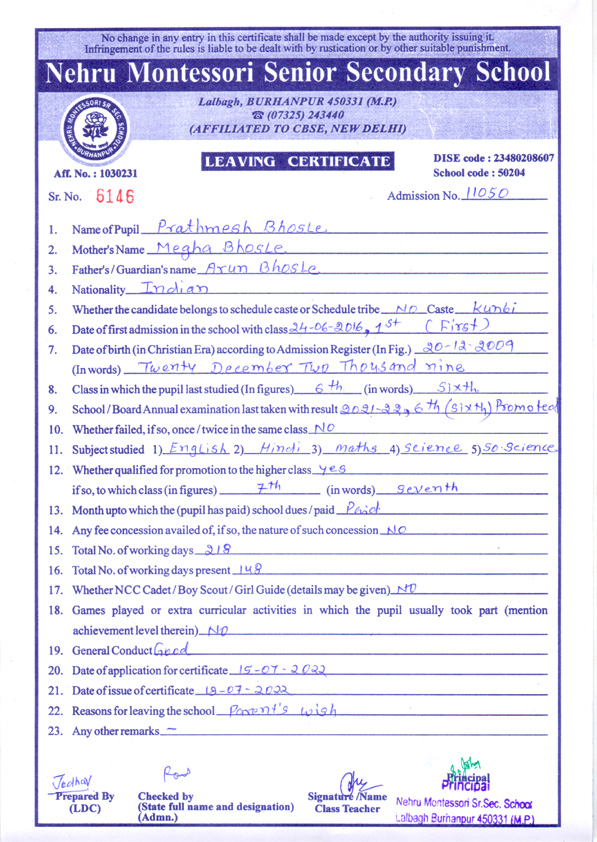 No change in any entry in this certificate shall be made except by the authority issuing it.
Infringement of the rules is liable to be dealt with by rustication or by other suitable punishment.
Nehru Montessori Senior Secondary School
Lalbagh, BURHANPUR 450331 (M.P.)
☎ (07325) 243440
(AFFILIATED TO CBSE, NEW DELHI)
NEHRU MONTESSORI SR. SEC. SCHOOL
BURHANPUR
Aff. No. : 1030231
LEAVING CERTIFICATE
DISE code : 23480208607
School code : 50204
Sr. No. 6146
Admission No. 11050
1. Name of Pupil Prathmesh Bhosle
2. Mother's Name Megha Bhosle
3. Father's / Guardian's name Arun Bhosle
4. Nationality Indian
5. Whether the candidate belongs to schedule caste or Schedule tribe NO Caste Kunbi
6. Date of first admission in the school with class 24-06-2016, 1st (First)
7. Date of birth (in Christian Era) according to Admission Register (In Fig.) 20-12-2009
(In words) Twenty December Two Thousand nine
8. Class in which the pupil last studied (In figures) 6th (in words) Sixth
9. School / Board Annual examination last taken with result 2021-22, 6th (Sixth) Promoted
10. Whether failed, if so, once / twice in the same class NO
11. Subject studied 1) English 2) Hindi 3) Maths 4) Science 5) So. Science
12. Whether qualified for promotion to the higher class yes
if so, to which class (in figures) 7th (in words) Seventh
13. Month upto which the (pupil has paid) school dues / paid Paid
14. Any fee concession availed of, if so, the nature of such concession NO
15. Total No. of working days 218
16. Total No. of working days present 148
17. Whether NCC Cadet / Boy Scout / Girl Guide (details may be given) NO
18. Games played or extra curricular activities in which the pupil usually took part (mention
achievement level therein) NO
19. General Conduct Good
20. Date of application for certificate 15-07-2022
21. Date of issue of certificate 18-07-2022
22. Reasons for leaving the school Parent's wish
23. Any other remarks —
Jadhav
Prepared By
(LDC)
Checked by
(State full name and designation)
(Admn.)
Signature / Name
Class Teacher
Principal
Principal
Nehru Montessori Sr.Sec. School
Lalbagh Burhanpur 450331 (M.P.)